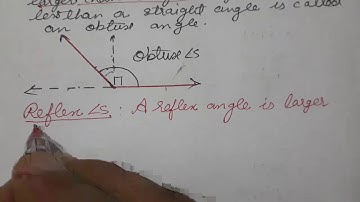 less than a straight angle is called
an obtuse angle.
Obtuse ∠S
Reflex ∠S : A reflex angle is larger